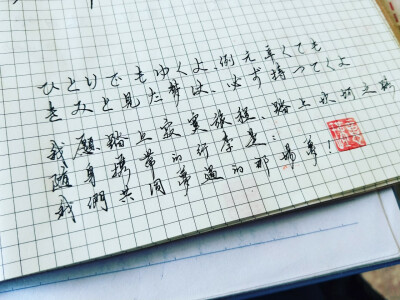 ひとりでもゆくよ、例え辛くても
きみと見た夢は、必ず持ってくよ
我願踏上寂寞旅程、踏上坎坷之路
隨身攜帶的行李是：
我們共同夢過的那場夢！